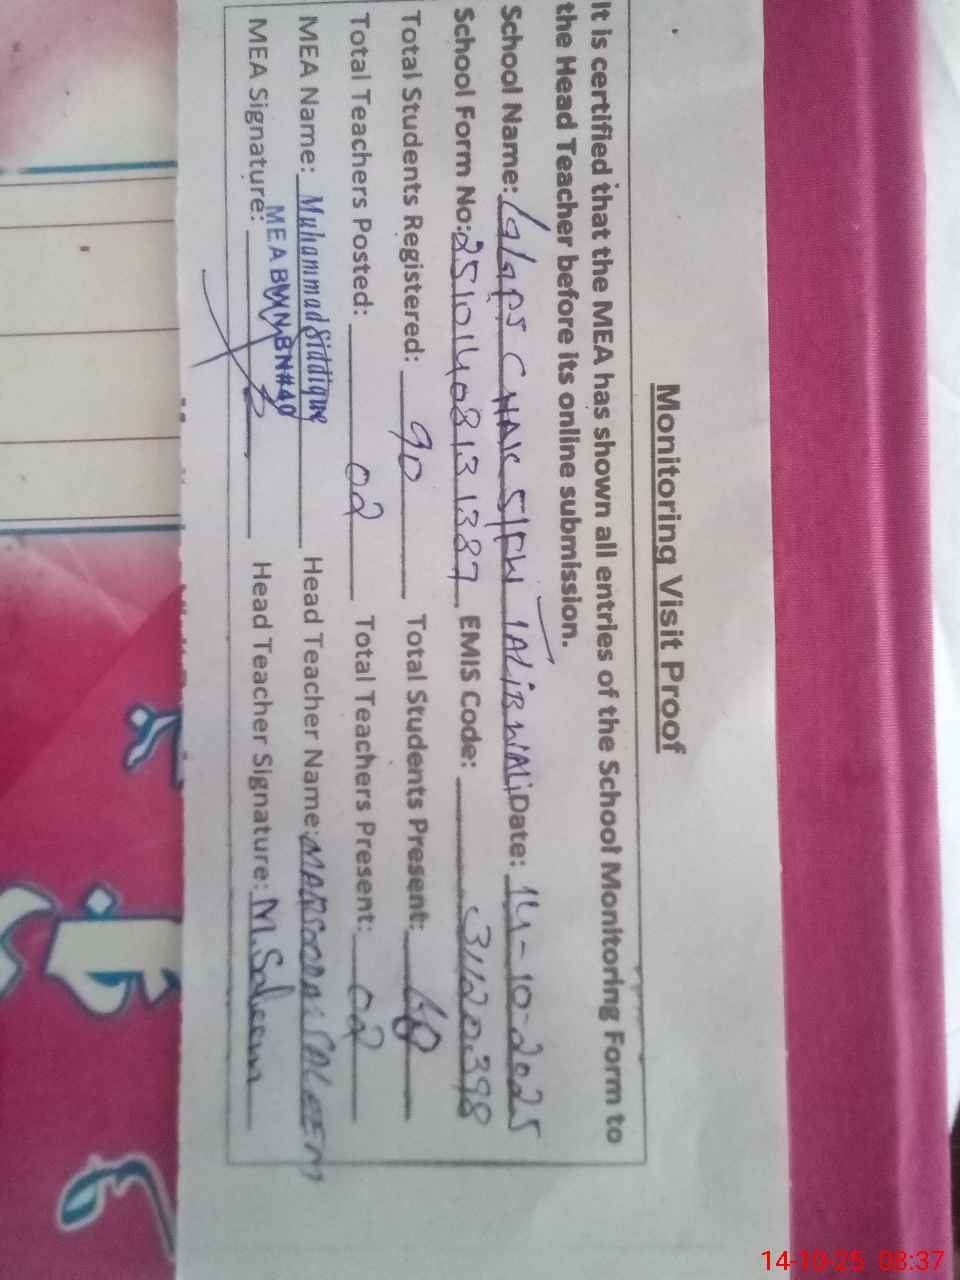 Monitoring Visit Proof
It is certified that the MEA has shown all entries of the School Monitoring Form to
the Head Teacher before its online submission.
School Name: CHAK 51FW TALiBWALi Date: 14-10-2025
School Form No: 25101408131387 EMIS Code: 31120398
Total Students Registered: 90 Total Students Present:
Total Teachers Posted: 02 Total Teachers Present: 02
MEA Name: Muhammad Siddique Head Teacher Name: SALEEM
MEA Signature: MEA BWN BN#40 Head Teacher Signature: M.Saleem
14-10-25 08:37